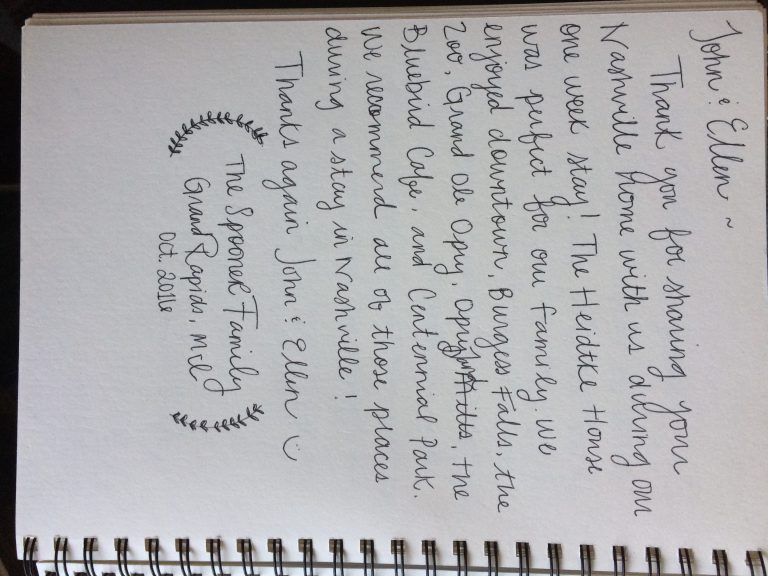 John & Ellen ~
Thank you for sharing your
Nashville home with us during our
one week stay! The Heidtke House
was perfect for our family. We
enjoyed downtown, Burgess Falls, the
Zoo, Grand Ole Opry, Opry Mills, the
Bluebird Cafe, and Centennial Park.
We recommend all of those places
during a stay in Nashville!
Thanks again John & Ellen :)
The Spooner Family
Grand Rapids, MI
Oct. 2016